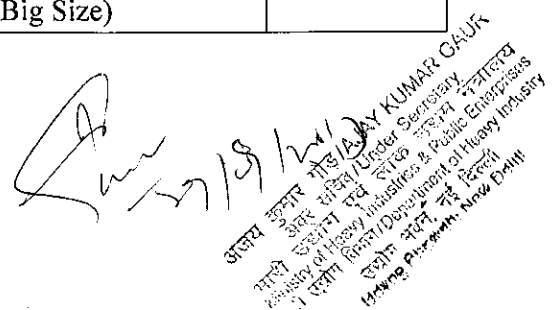 Big Size)
अजय कुमार गौड़/AJAY KUMAR GAUR
अवर सचिव/Under Secretary
भारी उद्योग एवं लोक उद्यम मंत्रालय
Ministry of Heavy Industries & Public Enterprises
उद्योग विभाग/Department of Heavy Industry
उद्योग भवन, नई दिल्ली
Udyog Bhawan, New Delhi